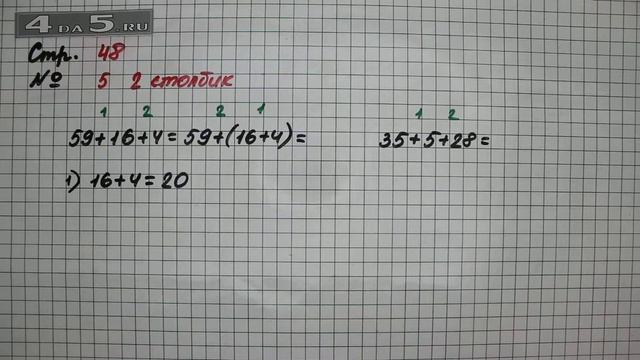 4DA5.RU
Стр. 48
№ 5 2 столбик
1 2 2 1 1 2
59+16+4=59+(16+4)= 35+5+28=
1) 16+4=20